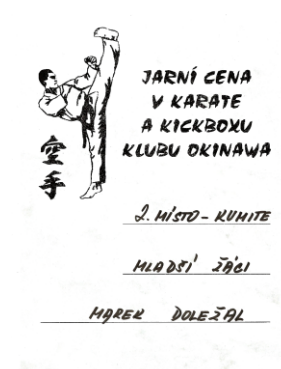 JARNÍ CENA
V KARATE
A KICKBOXU
KLUBU OKINAWA
空手
2. MÍSTO - KUMITE
MLADŠÍ ŽÁCI
MAREK DOLEŽAL